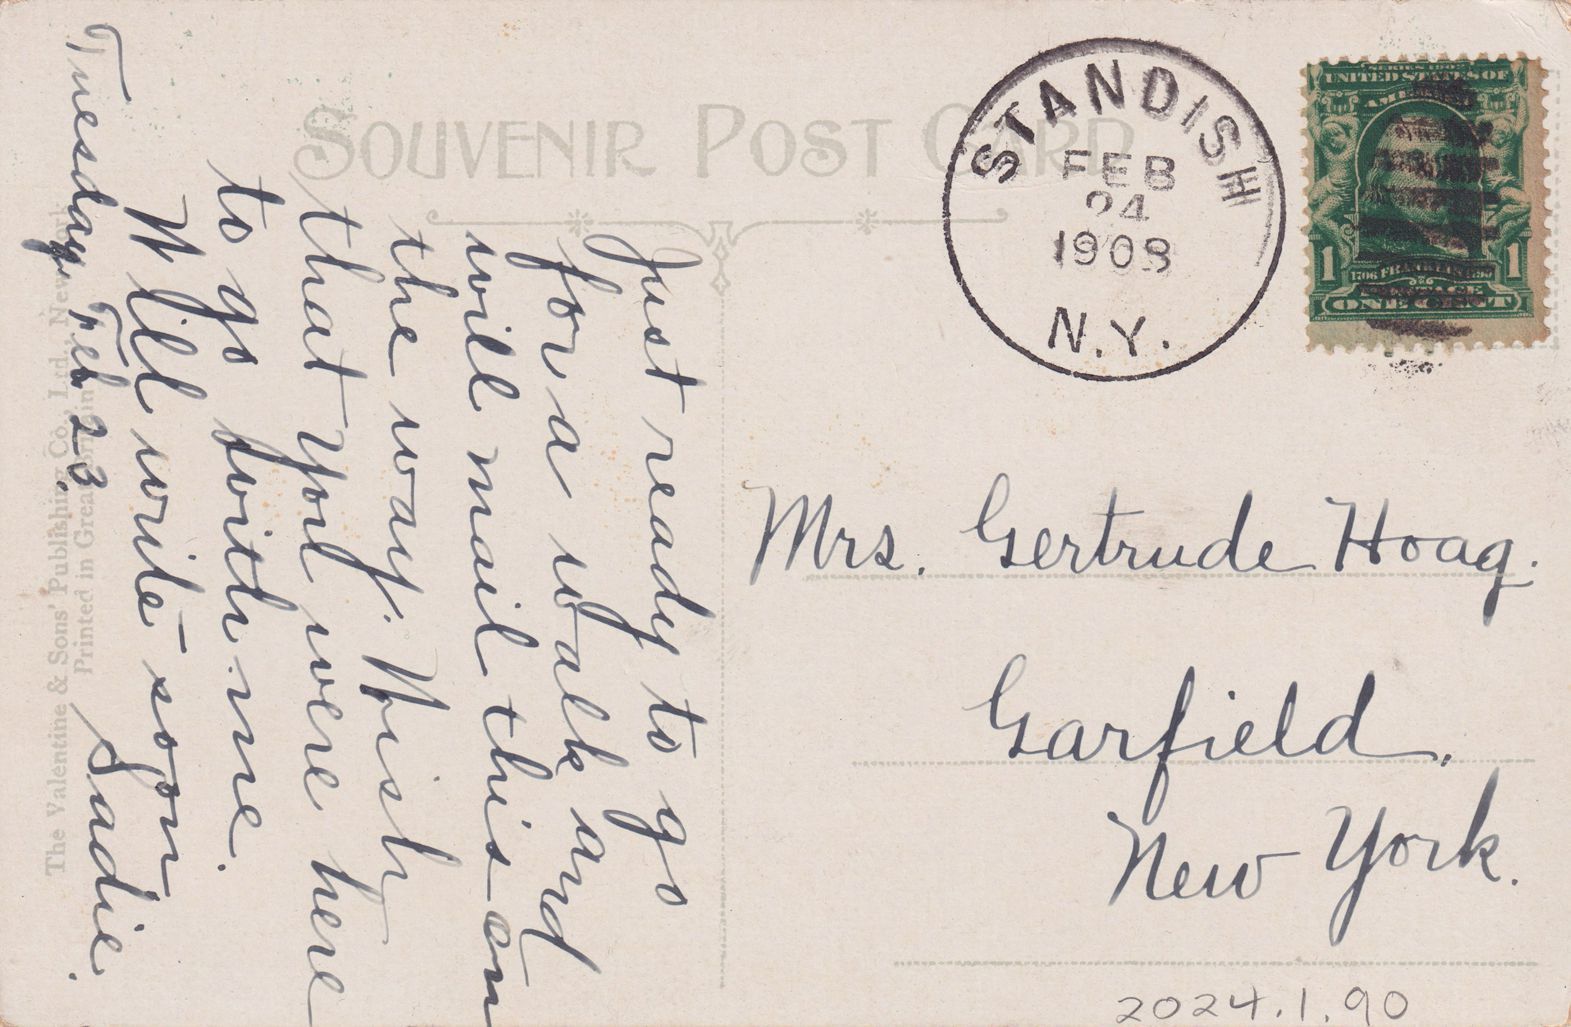 SOUVENIR POST CARD
STANDISH
FEB
24
1908
N.Y.
SERIES 1902
UNITED STATES OF
AMERICA
1 1706 FRANKLIN 1790 1
POSTAGE
ONE CENT
Just ready to go
for a walk and
will mail this on
the way. Wish
that you were here
to go with me.
Will write soon
Sadie.
Tuesday, Feb 23.
The Valentine & Sons' Publishing Co., Ltd., New York
Printed in Great Britain
Mrs. Gertrude Hoag.
Garfield,
New York.
2024.1.90